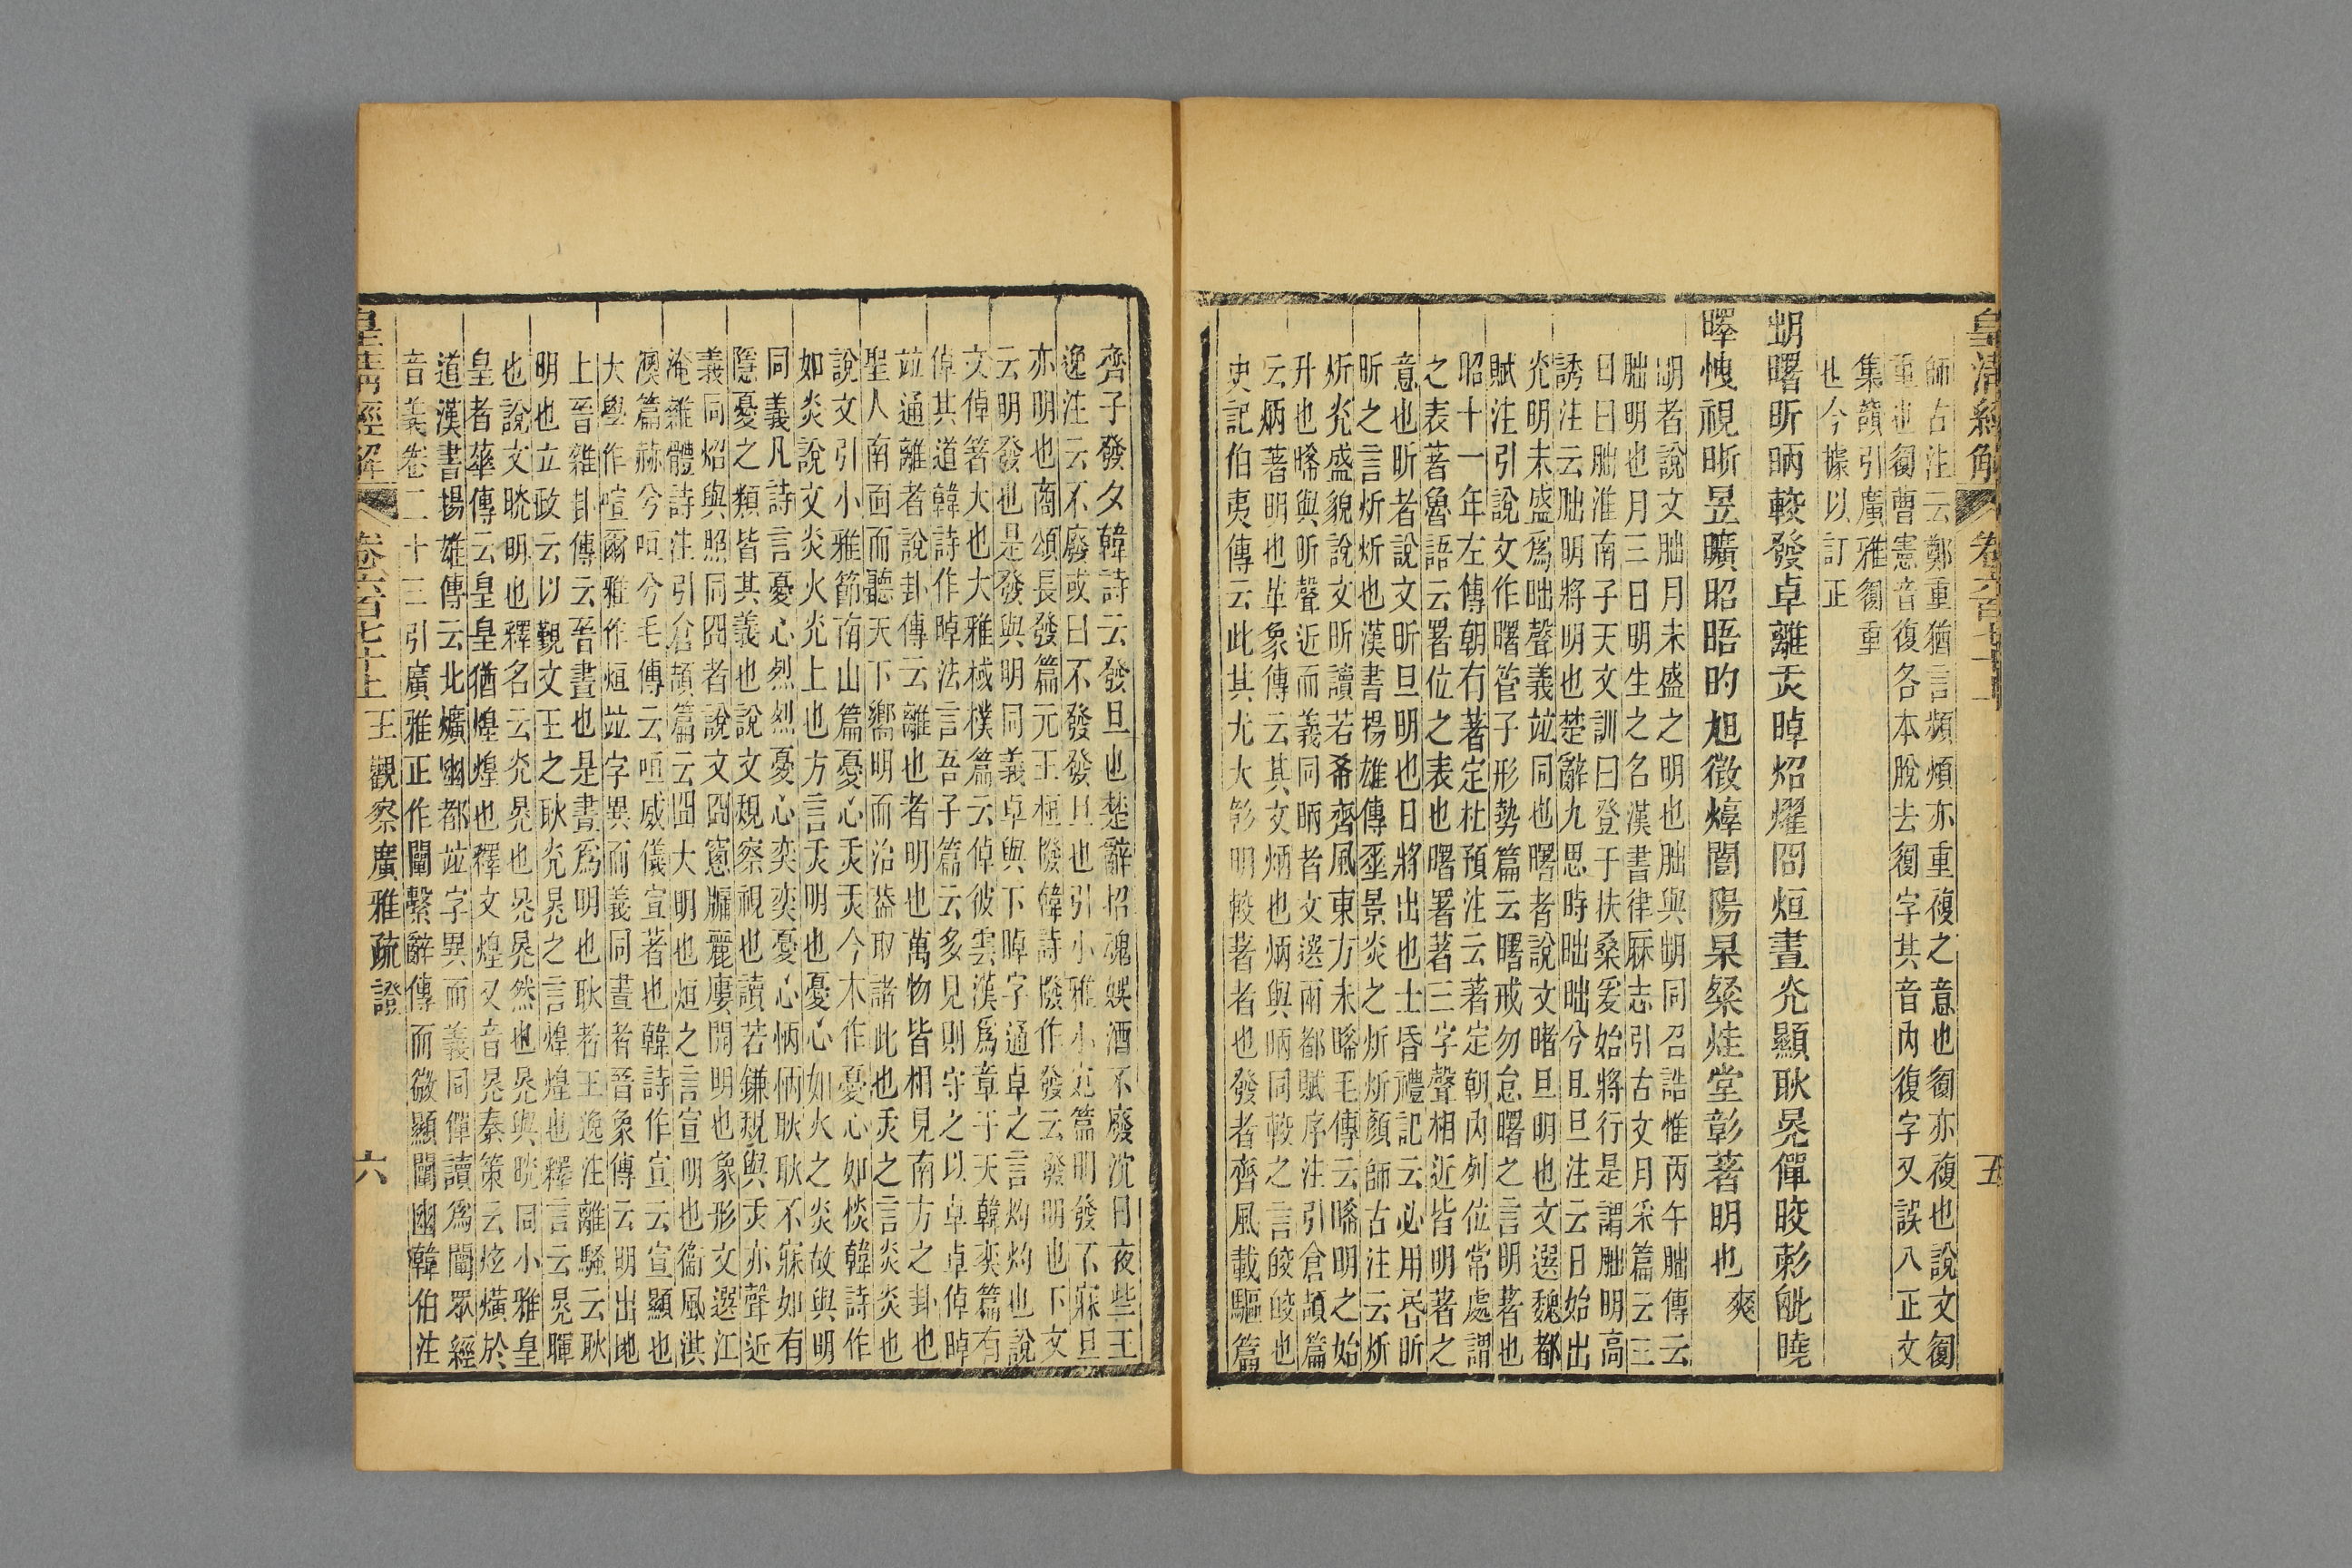 皇清經解 卷六百七十上 五
師古注云鄭重猶言頻煩亦重複之意也𧟟亦複也說文𧟟
重也𧟟曹憲音復各本脫去𧟟字其音內復字又誤入正文
集韻引廣雅𧟟重
也今據以訂正
曙昕昞較發卓離炗晫炤燿冏烜晝炛顯耿晃僤晈㣋曉
曎曳視晰昱曠昭晤旳旭徵闇陽杲粲烓堂彰著明也爽
者說文朏月未盛之明也朏與同召誥惟丙午朏傳云
朏明也月三日明生之名漢書律厤志引古文月采篇云三
日曰朏淮南子天文訓曰登于扶桑爰始將行是謂朏明高
誘注云朏明將明也楚辭九思時昢昢兮且旦注云日始出
炛明未盛爲昢聲義竝同也曙者說文睹旦明也文選魏都
賦注引說文作曙管子形勢篇云曙戒勿怠曙之言明著也
昭十一年左傳朝有著定杜預注云著定朝內列位常處謂
之表著魯語云署位之表也曙署著三字聲相近皆明著之
意也昕者說文昕旦明也日將出也士昏禮記云必用昏昕
昕之言炘炘也漢書揚雄傳垂景炎之炘炘顏師古注云炘
炘炛盛貌說文昕讀若希齊風東方未晞毛傳云晞明之始
升也晞與昕聲近而義同昞者文選兩都賦序注引倉頡篇
云炳著明也革象傳云其文炳也炳與昞同較之言皎皎也
史記伯夷傳云此其尤大彰明較著者也發者齊風載驅篇
齊子發夕韓詩云發旦也楚辭招魂娛酒不廢沈日夜些王
逸注云不廢或曰不發發旦也引小雅小宛篇明發不寐旦
亦明也商頌長發篇元王桓撥韓詩撥作發云發明也下文
云明發也是發與明同義卓與下晫字通卓之言灼灼也說
文倬箸大也大雅棫樸篇云倬彼雲漢爲章于天韓奕篇有
倬其道韓詩作晫法言吾子篇云多見則守之以卓卓倬晫
竝通離者說卦傳云離也者明也萬物皆相見南方之卦也
聖人南面而聽天下嚮明而治葢取諸此也炗之言炎炎也
說文引小雅節南山篇憂心炗炗今本作憂心如惔韓詩作
如炎說文炎火炛上也方言炗明也憂心如火之炎故與明
同義凡詩言憂心烈烈憂心奕奕憂心怲怲耿耿不寐如有
隱憂之類皆其義也說文覢察視也讀若鎌覢與炗亦聲近
義同炤與照同冏者說文囧窻牖麗廔闓明也象形文選江
淹雜體詩注引倉頡篇云囧大明也烜之言宣明也衞風淇
澳篇赫兮咺兮毛傳云咺威儀宣著也韓詩作宣云宣顯也
大學作喧爾雅作烜竝字異而義同晝者晉象傳云明出地
上晉雜卦傳云晉晝也是晝爲明也耿者王逸注離騷云耿
明也立政云以覲文王之耿炛晃之言煌煌也釋言云晃暉
也說文晄明也釋名云炛晃也晃晃然也晃與晄同小雅皇
皇者華傳云皇皇猶煌煌也釋文煌又音晃秦策云炫熿於
道漢書揚雄傳云北爌幽都竝字異而義同僤讀爲闡眾經
音義卷二十三引廣雅正作闡繫辭傳而微顯闡幽韓伯注
皇清經解 卷六百七十上 王觀察廣雅疏證 六